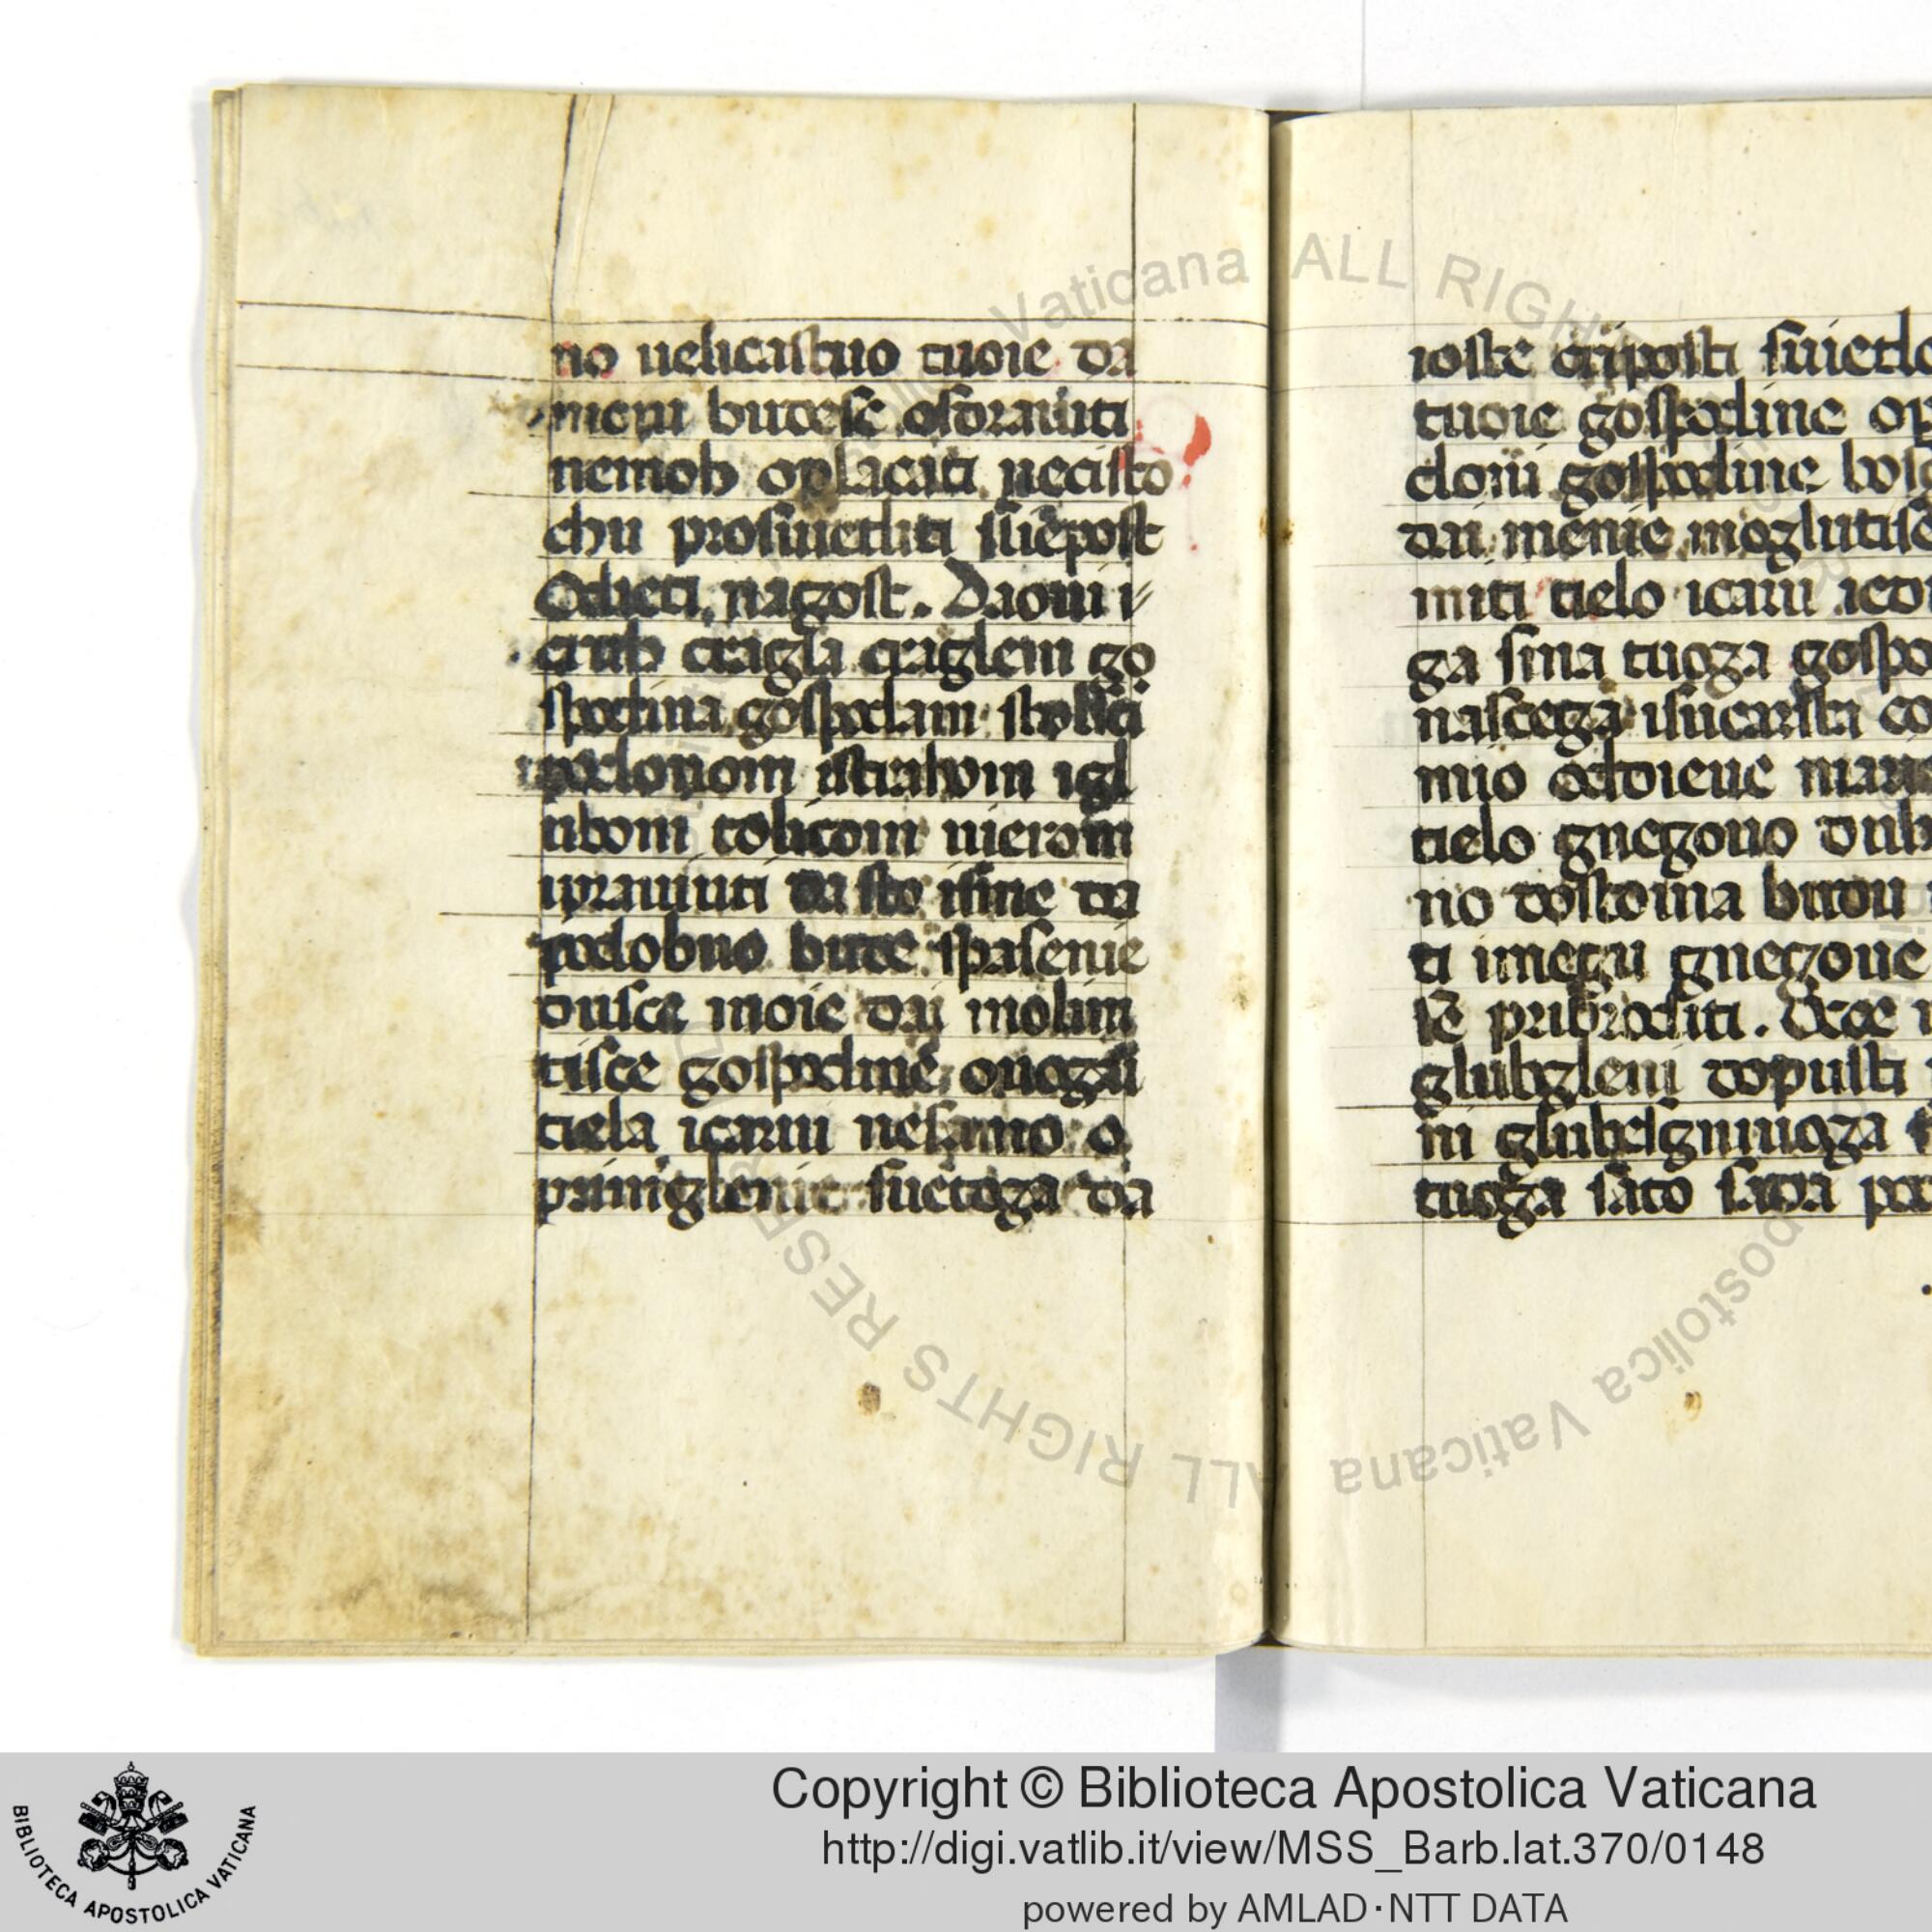 no uelicastuo tuoie da
meni budese osdrauiti
nemoh oplacati necisto
chu prosiuetliti sliepost
Odieti nagost. Daoui i
cragla craglem go
spodina gospodam
istrahom igl
ubom tolicom uierom
upraujuti da sto isine da
podobno bude spasenie
dusce moie dai molim
tisce gospodine onogaj
tiela icarui nesamo o
primiglenie suetoga da
ioste criposti suietlo
tuoie gospodine
dom gospodine
dai menie moglutise
miti tielo icaru
ga sina tuoga gospo
nascega isucarsta
mio odieue
tielo gnegouo
no dostoina budou
ti imegu gnegoue
se pribroditi. Otce
glubgleni dopusti
ni glubelgniuoga
tuoga sato sada
Vaticana ALL RIGH
ALL RIGHTS RESER
postolica Vaticana
BIBLIOTECA APOSTOLICA VATICANA
Copyright © Biblioteca Apostolica Vaticana
http://digi.vatlib.it/view/MSS_Barb.lat.370/0148
powered by AMLAD·NTT DATA